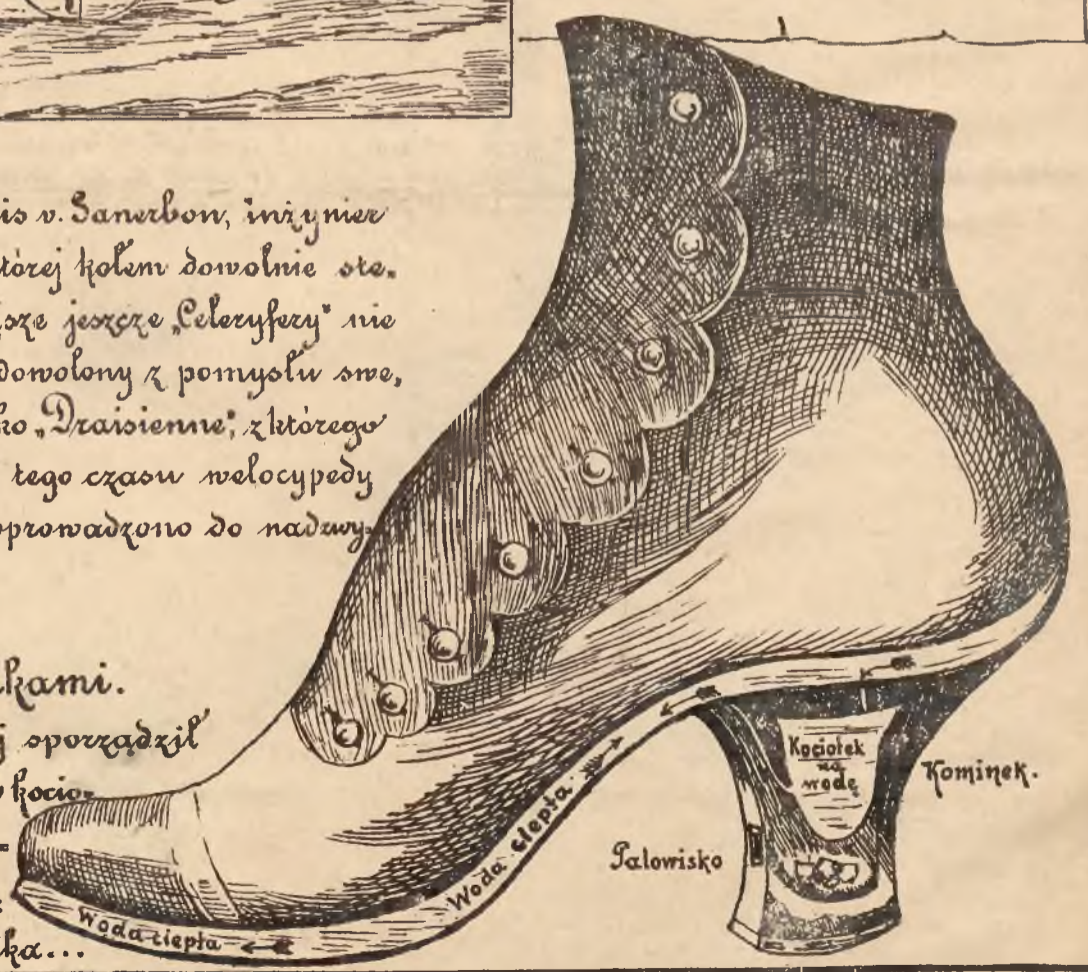 is v. Sanerbon, inżynier
tórej kołem dowolnie ste-
sze jeszcze „Celeryfery” nie
dowolony z pomysłu swe-
ko „Draisienne”, z którego
tego czasu welocypedy
prowadzono do nadzwy-
kami.
j sporządził
kocio-
ka...
Kociołek
na
wodę
Kominek.
Palowisko
Woda ciepła
Woda ciepła